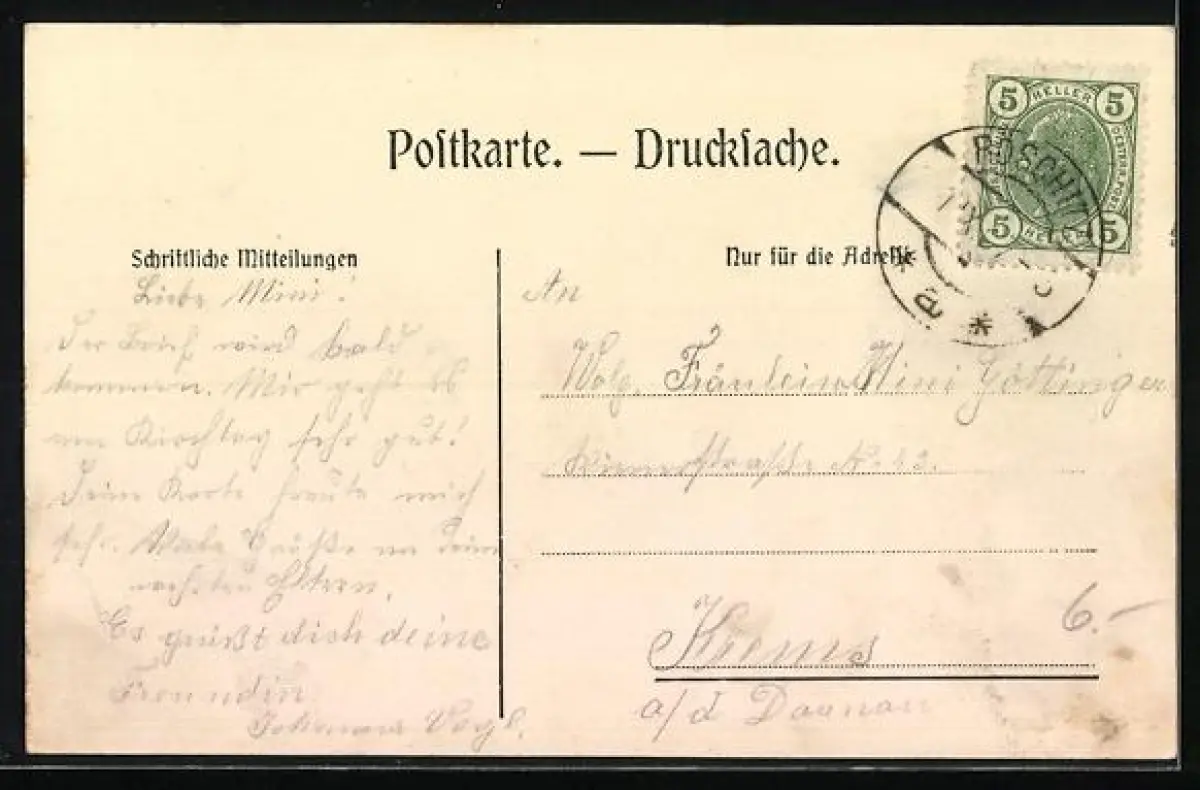 Postkarte. — Drucksache.
Schriftliche Mitteilungen
Liebe Mini!
Der Brief wird bald
kommen. Mir geht es
am Kirchtag sehr gut!
Deine Karte freute mich
sehr. Viele Grüße an deine
werten Eltern.
Es grüßt dich deine
Freundin
Vogl.
Nur für die Adresse
An
Fräulein Mini Göttinger
Wienerstraße N.
Krems
a/d Doanau
6.-
5 HELLER 5
5 5
RÖSCHITZ
* a *